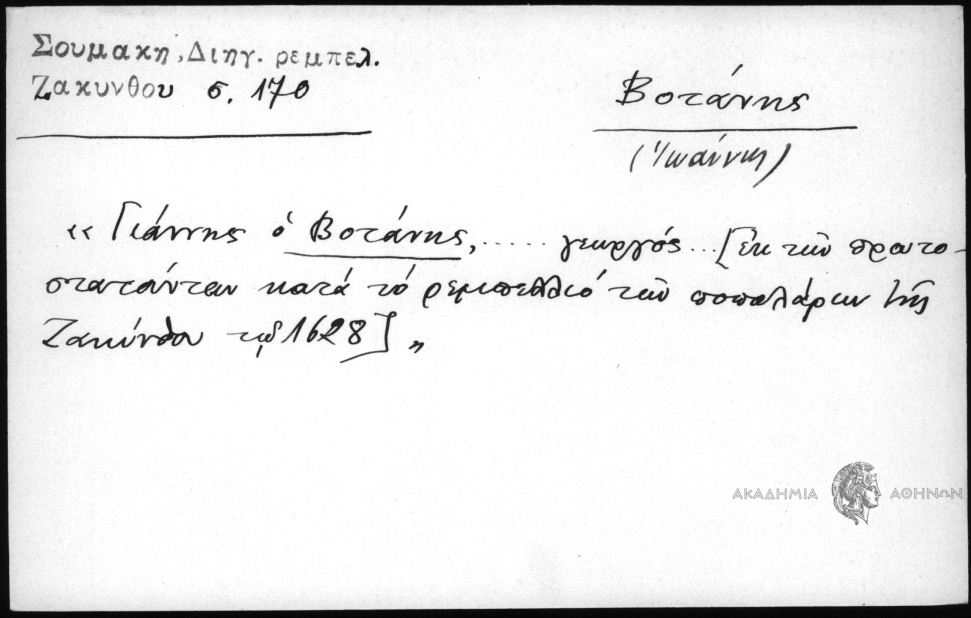 Σουμακη, Διηγ. ρεμπελ.
Ζακυνθου σ. 170
Βοτάνης
(Ἰωάννης)
« Γιάννης ὁ Βοτάνης, ..... γεωργός... [ἐκ τῶν πρωτο-
στατούντων κατά τό ρεμπελλιό τῶν ποπολάρων τῆς
Ζακύνθου τῷ 1628] „
ΑΚΑΔΗΜΙΑ ΑΘΗΝΩΝ